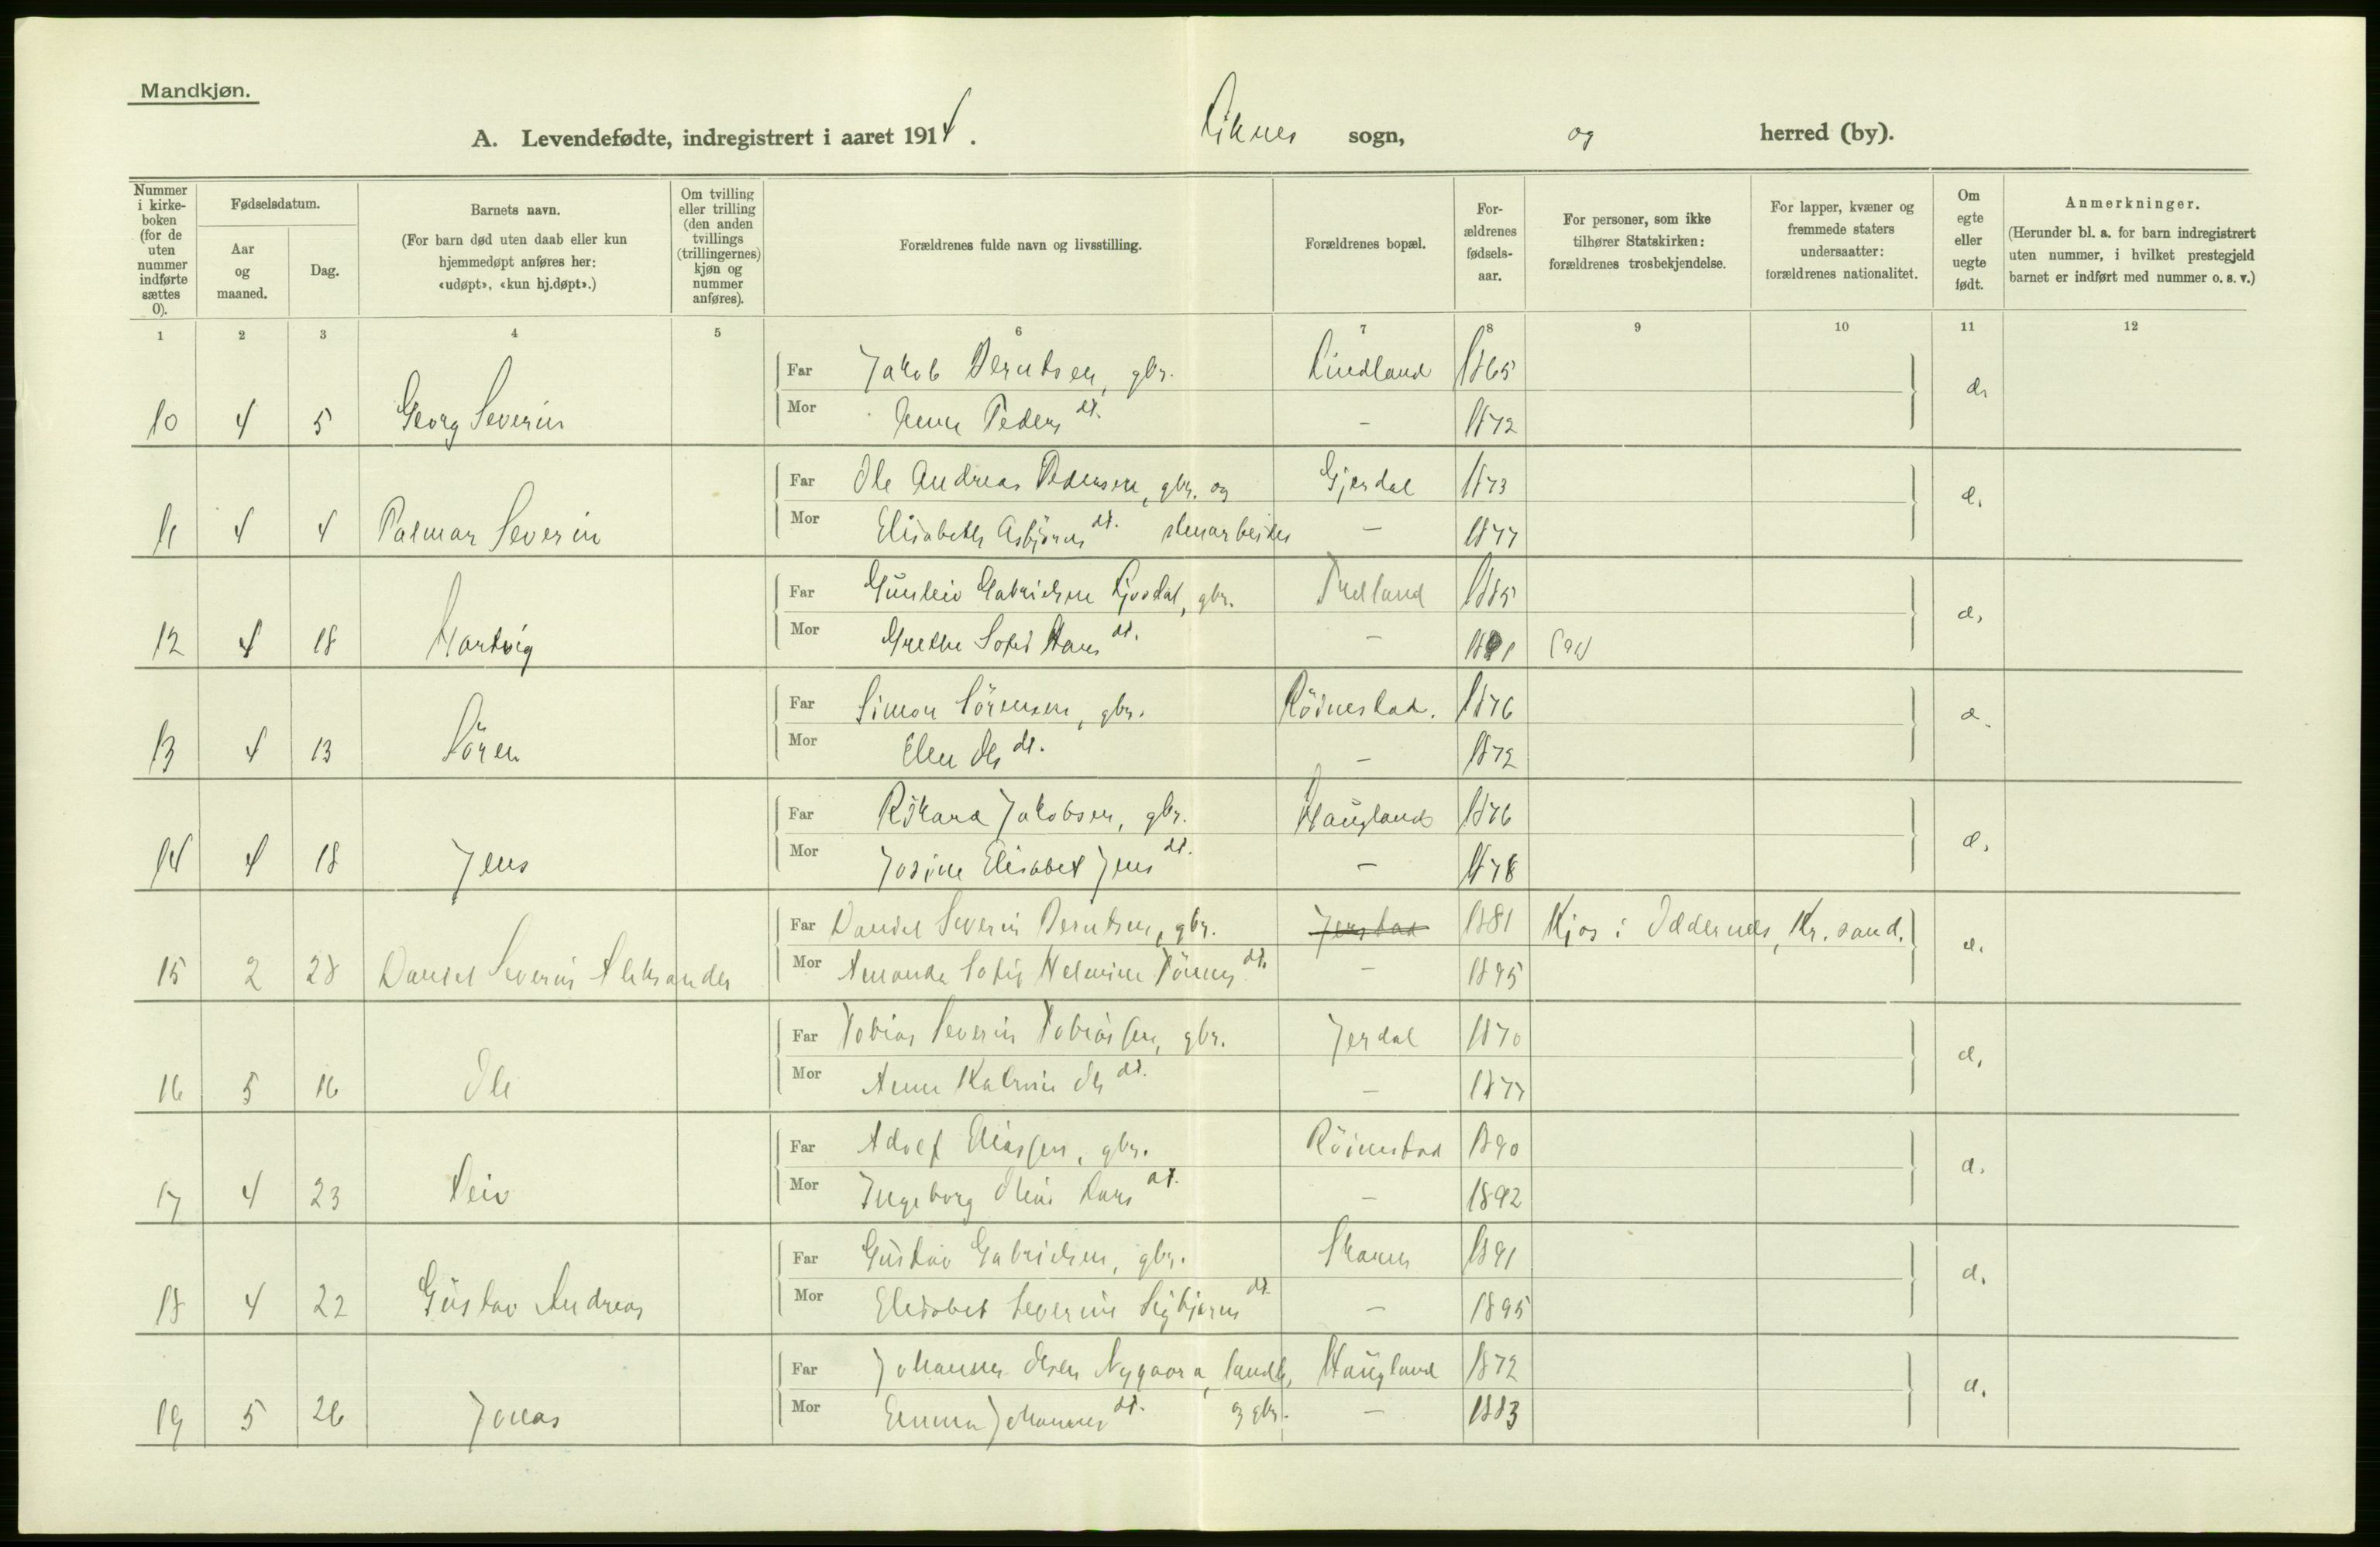 Mandkjøn.
A. Levendefødte, indregistrert i aaret 1914. Liknes sogn, og herred (by).
Nummer i kirkeboken (for de uten nummer indførte sættes 0).
Fødselsdatum.
Aar og maaned.
Dag.
Barnets navn.
(For barn død uten daab eller kun hjemmedøpt anføres her: «udøpt», «kun hj.døpt».)
Om tvilling eller trilling (den anden tvillings (trillingernes) kjøn og nummer anføres).
Forældrenes fulde navn og livsstilling.
Forældrenes bopæl.
Forældrenes fødselsaar.
For personer, som ikke tilhører Statskirken: forældrenes trosbekjendelse.
For lapper, kvæner og fremmede staters undersaatter: forældrenes nationalitet.
Om egte eller uegte født.
Anmerkninger.
(Herunder bl. a. for barn indregistrert uten nummer, i hvilket prestegjeld barnet er indført med nummer o. s. v.)
1 2 3 4 5 6 7 8 9 10 11 12
Far Jakob Berntsen, gbr. Lindland 1865
10 4 5 Georg Severin Mor Peders dt. – 1872
Far Ole Andreas Pedersen, gbr. og Gjerdal 1873
11 4 4 Palmar Severin Mor Elisabeth Asbjörns dt. stenarbeider – 1877
Far Gunleiv Gabrielsen, gbr. 1885
12 4 18 Hartvig Mor Grethe Sofie Hans dt. –
Far Simon Sörensen, gbr. Röinestad. 1876
13 4 13 Sören Mor Elen Ols dt. – 1872
Far Rikard Jakobsen, gbr. Haugland 1876
14 4 18 Jens Mor Josine Elisabet Jens dt. – 1878
Far Daniel Severin Berntsen, gbr. Jerstad 1881 Kjos i Oddernes, Kr.sand.
15 2 28 Daniel Severin Aleksander Mor Amanda Sofie Helmine Tönnes dt. – 1895
Far Tobias Severin Tobiassen, gbr. Jerdal 1870
16 5 16 Ole Mor Anne Katrine Ols dt. – 1877
Far Adolf Eliassen, gbr. Röinestad 1890
17 4 23 Leiv Mor Ingeborg Oline Lars dt. – 1892
Far Gustav Gabrielsen, gbr. 1891
18 4 22 Gustav Andreas Mor Elisabet Severine Sigbjörns dt. – 1895
Far Johannes Olsen Nygaard, landh. Haugland 1872
19 5 26 Jonas Mor Emma Johannes dt. og gbr. – 1883